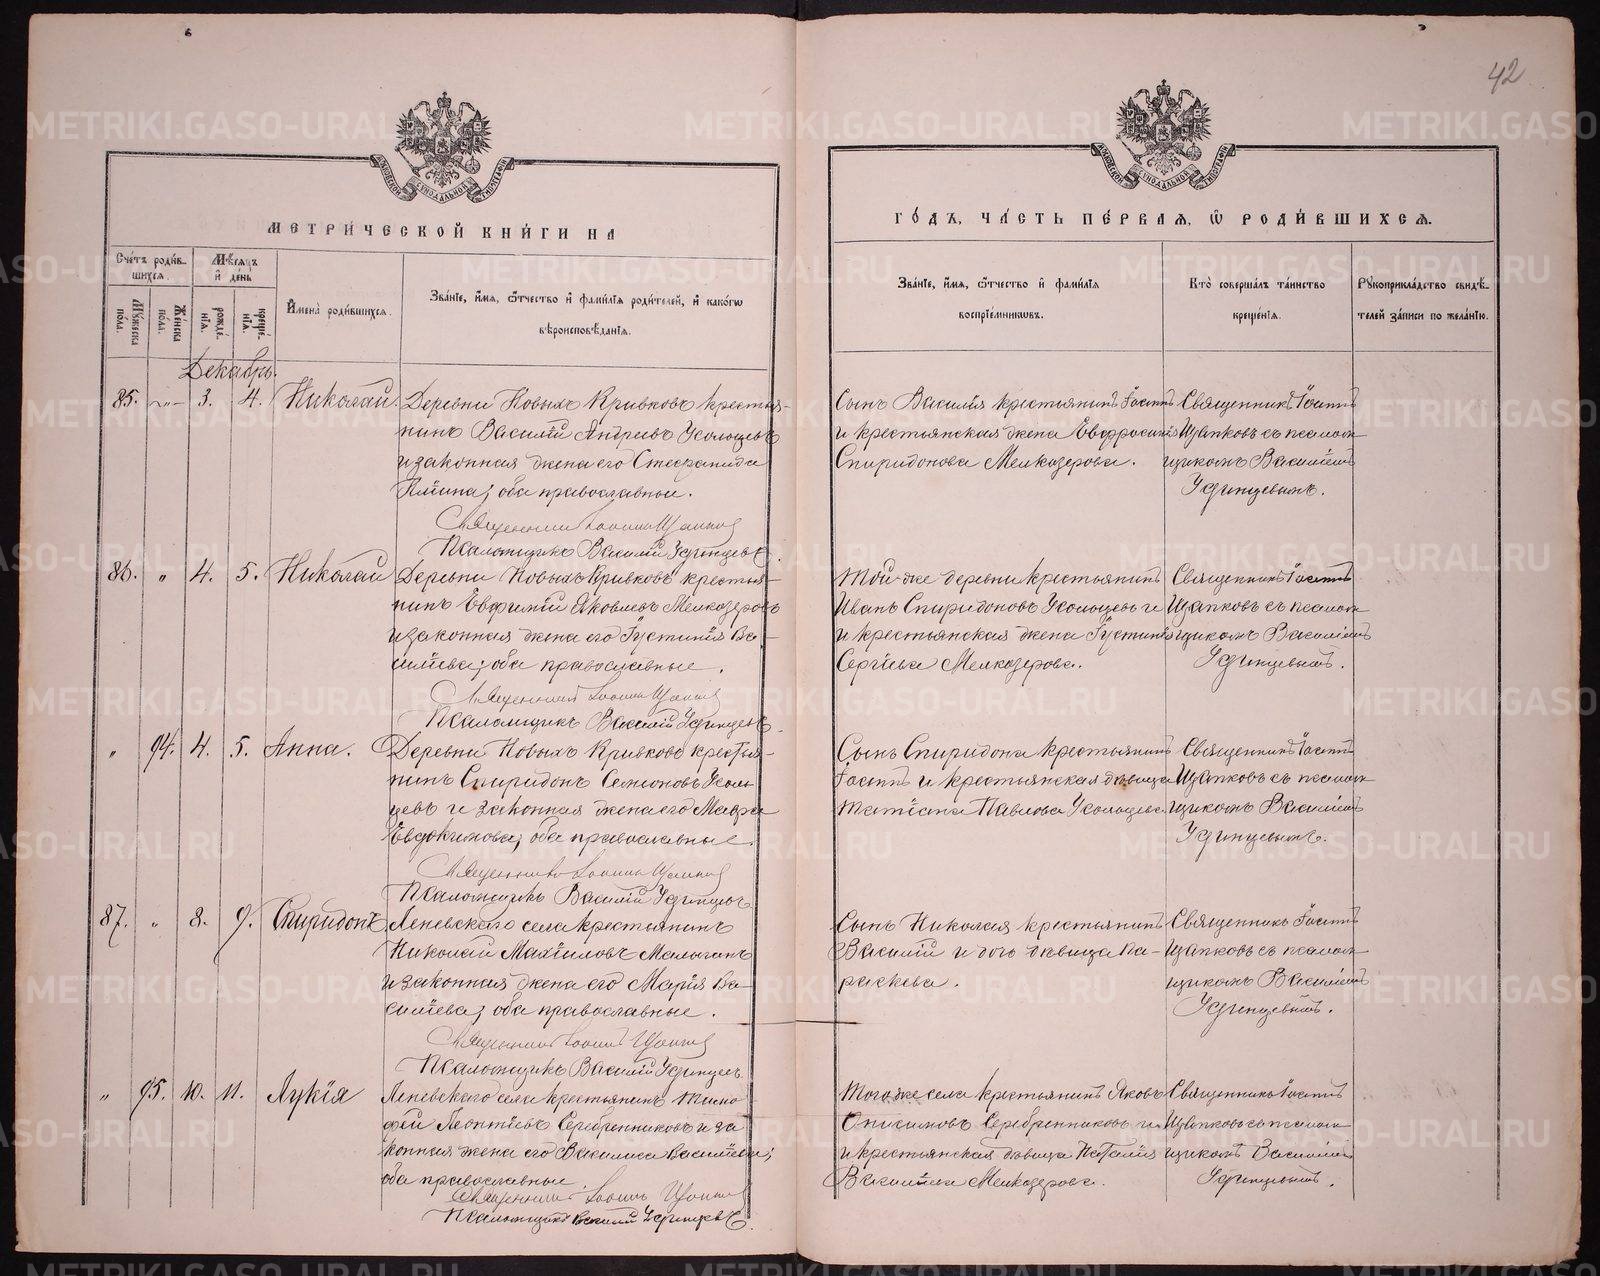 42
МЕТРИ́ЧЕСКОЙ КНИ́ГИ НА
ГО́ДЪ, ЧА́СТЬ ПЕ́РВАЯ, Ѿ РОДИ́ВШИХСЯ.
Сче́тъ роди́в-
шихся.
Мѣ́сяцъ
и де́нь
Му́жеска
по́ла.
Же́нска
по́ла.
рожде́-
нїя.
креще́-
нїя.
Имена̀ роди́вшихся.
Зва́нїе, и́мя, ѻ́тчество и фами́лїя роди́телей, и како́гѡ
вѣроисповѣ́данїя.
Зва́нїе, и́мя, ѻ́тчество и фами́лїя
воспрїе́мниковъ.
Кто̀ соверша́лъ та́инство
креще́нїя.
Рукоприкла́дство свидѣ́-
телей за́писи по жела́нїю.
Декабрь.
85. „ 3. 4. Николай.
Деревни Новыхъ Кривковъ крестья-
нинъ Василій Андреевъ Усольцевъ
и законная жена его Стефанида
оба православные.
Священникъ Іоаннъ Щапковъ
Псаломщикъ Василій Удинцевъ.
Сынъ Василія крестьянинъ Іоаннъ
и крестьянская жена Евфросинія
Спиридонова Мелкозерова.
Священникъ Іоаннъ
Щапковъ съ псалом-
щикомъ Василіемъ
Удинцевымъ.
86. „ 4. 5. Николай
Деревни Новыхъ Кривковъ крестья-
нинъ Евфимій Яковлевъ Мелкозеровъ
и законная жена его Іустинія Ва-
силіева; оба православные.
Священникъ Іоаннъ Щапковъ
Псаломщикъ Василій Удинцевъ.
Той же деревни крестьянинъ
Иванъ Спиридоновъ Усольцевъ и
и крестьянская жена Іустинія
Сергіева Мелкозерова.
Священникъ Іоаннъ
Щапковъ съ псалом-
щикомъ Василіемъ
Удинцевымъ.
„ 94. 4. 5. Анна.
Деревни Новыхъ Кривковъ крестья-
нинъ Спиридонъ Семеоновъ Усоль-
цевъ и законная жена его Мавра
Евдокимова; оба православные.
Священникъ Іоаннъ Щапковъ
Псаломщикъ Василій Удинцевъ
Сынъ Спиридона крестьянинъ
Іоаннъ и крестьянская дѣвица
Татіана Павлова Усольцева.
Священникъ Іоаннъ
Щапковъ съ псалом-
щикомъ Василіемъ
Удинцевымъ.
87. „ 8. 9. Спиридонъ
Леневскаго села крестьянинъ
Николай Малыгинъ
и законная жена его Марія Ва-
силіева; оба православные.
Священникъ Іоаннъ Щапковъ
Псаломщикъ Василій Удинцевъ.
Сынъ Николая крестьянинъ
Василій и дочь дѣвица Па-
раскева.
Священникъ Іоаннъ
Щапковъ съ псалом-
щикомъ Василіемъ
Удинцевымъ.
„ 95. 10. 11. Лукія
Леневскаго села крестьянинъ Тимо-
фей Леонтіевъ Серебренниковъ и за
конная жена его Василиса Василіева;
оба православные.
Священникъ Іоаннъ Щапковъ
Псаломщикъ Василій Удинцевъ.
Того же села крестьянинъ Яковъ
Онисимовъ Серебренниковъ и
и крестьянская дѣвица Наталія
Василіева Мелкозерова.
Священникъ Іоаннъ
Щапковъ съ псалом-
щикомъ Василіемъ
Удинцевымъ.
METRIKI.GASO-URAL.RU